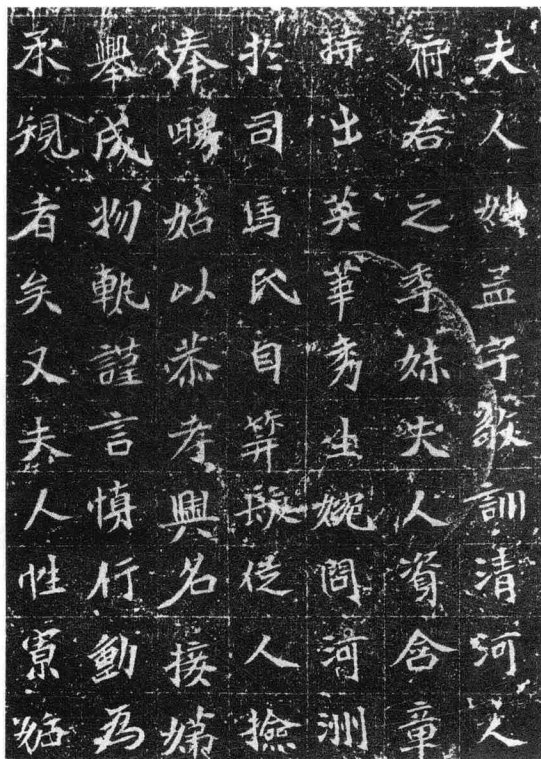 夫人姓孟字敬訓清河人
府君之季妹夫人資含章
持出英華秀生婉問河洲
於司馬氏自笄髮從人撿
奉姑以恭孝興名接娣
舉成物軌謹言慎行動為
承規者矣又夫人性寡妬